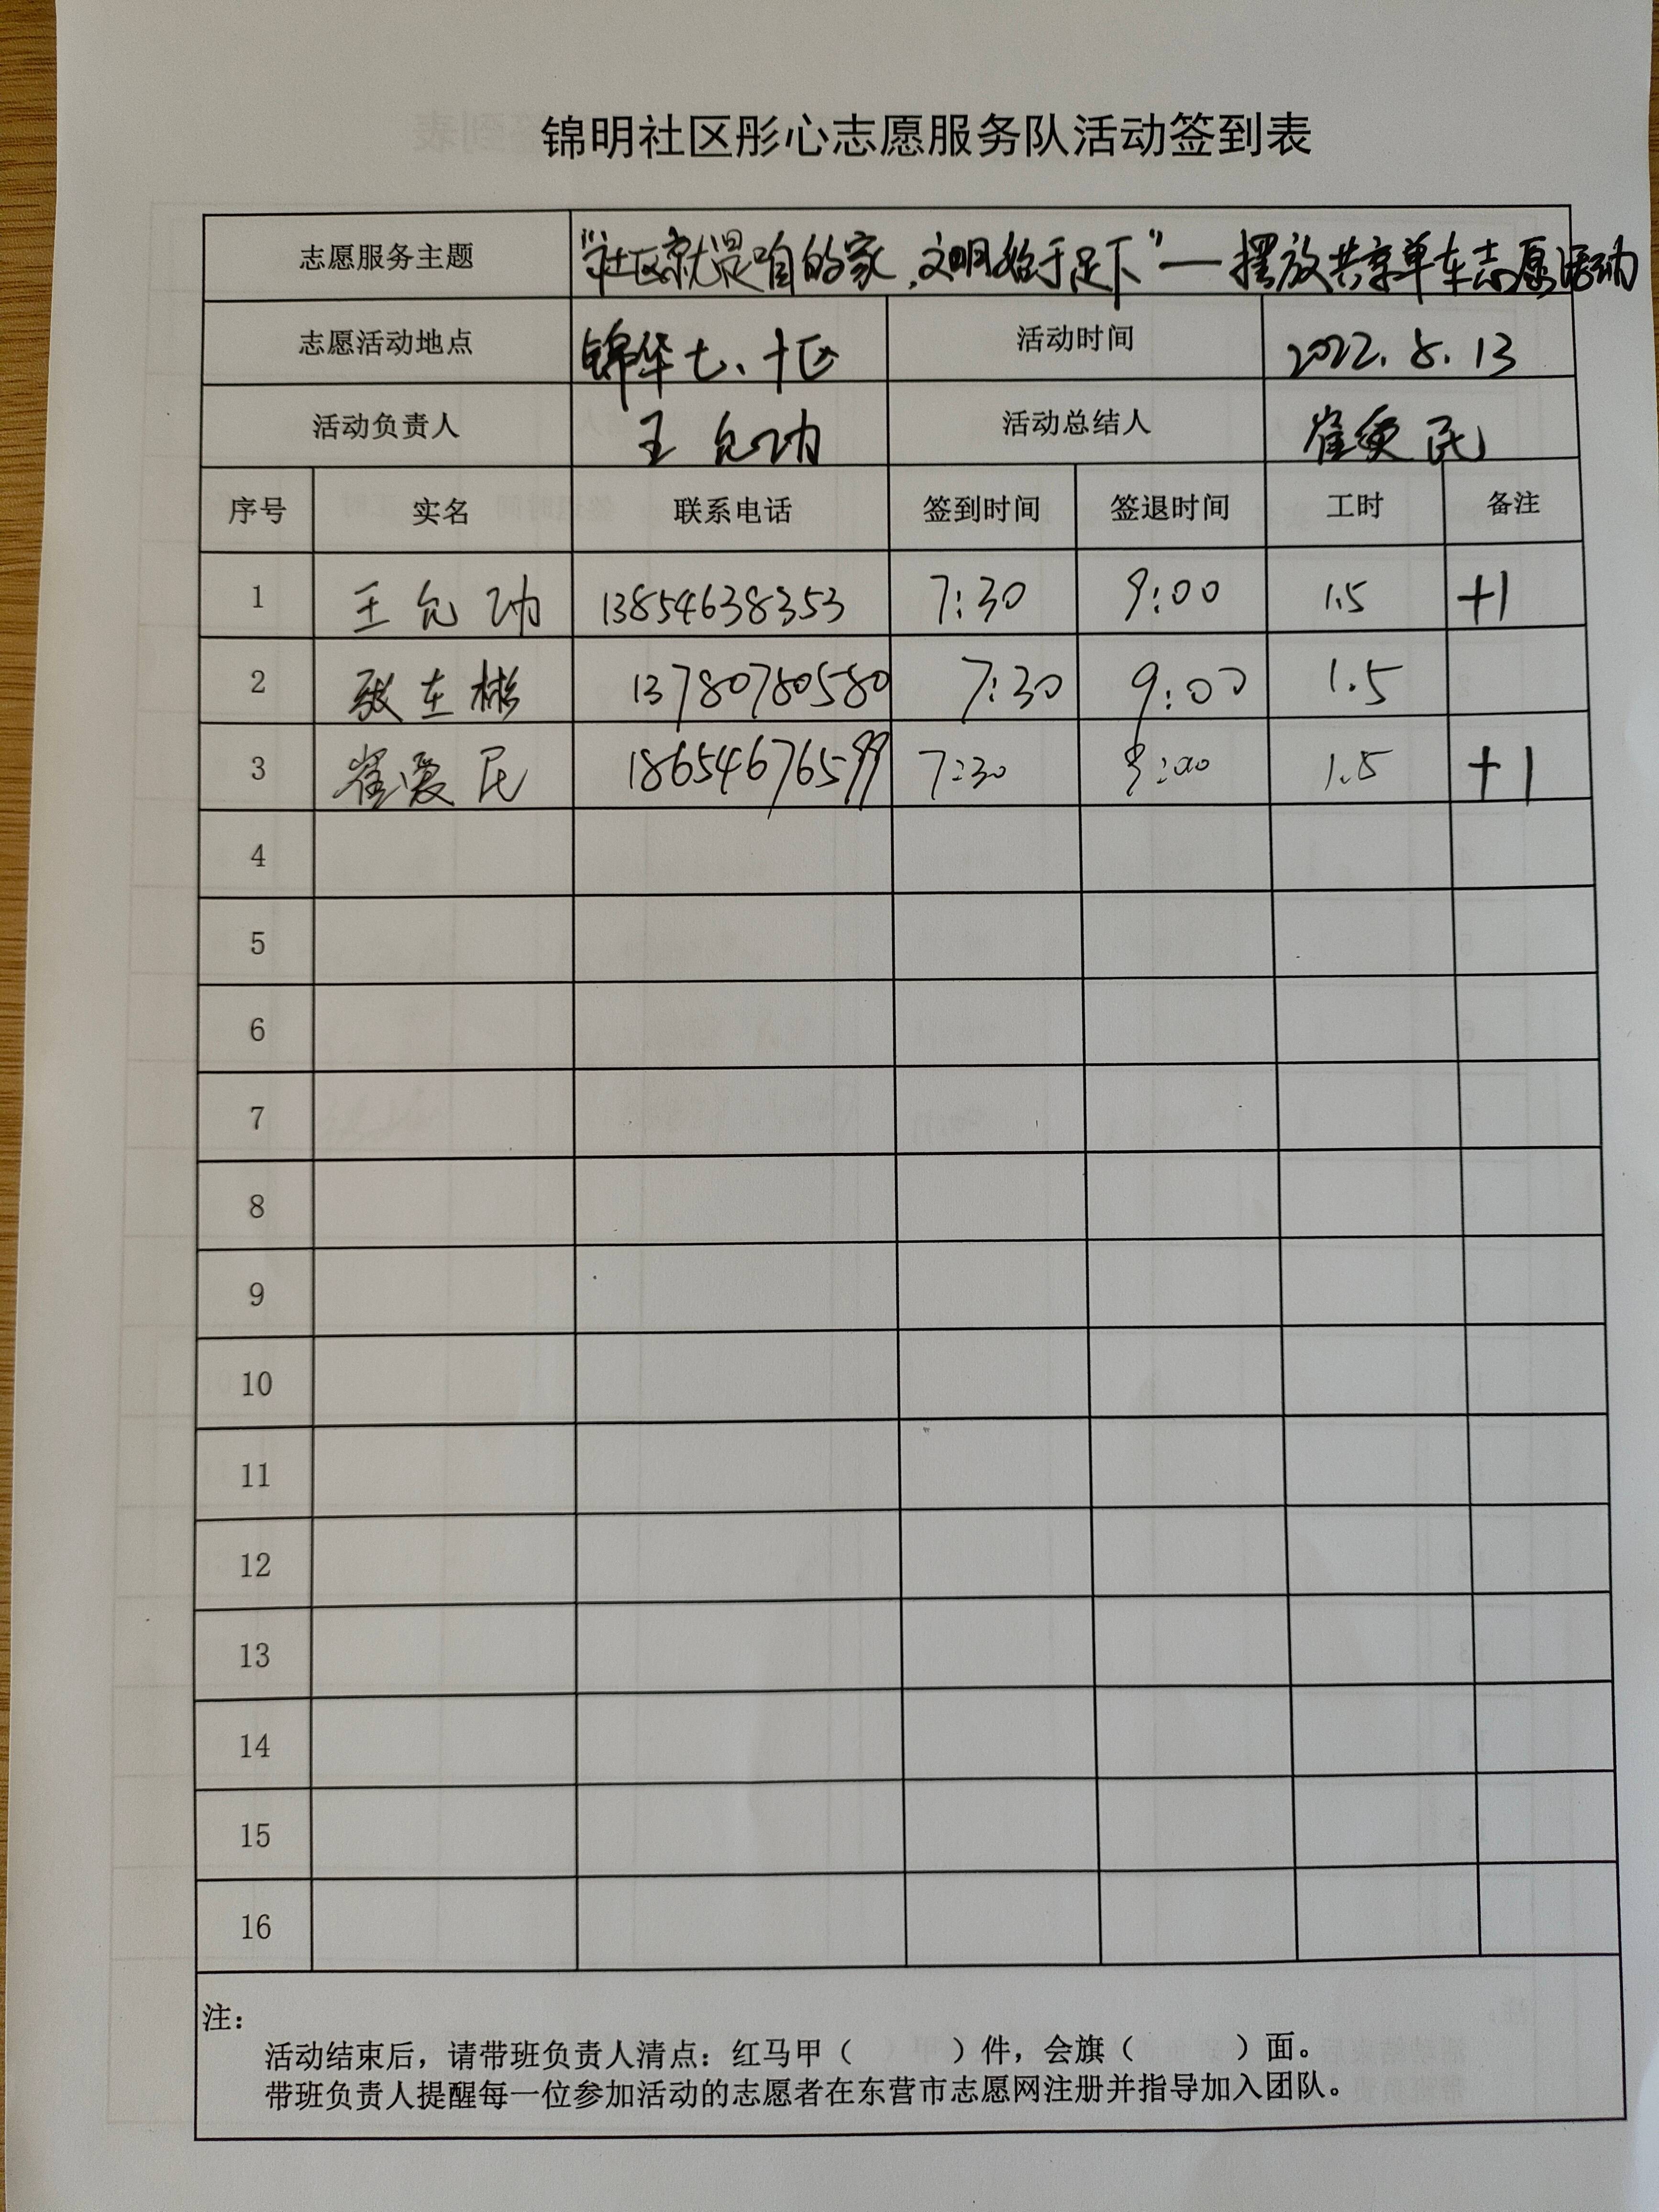 锦明社区彤心志愿服务队活动签到表
志愿服务主题 "社区就是咱的家，文明始于足下"—摆放共享单车志愿活动
志愿活动地点 锦华七、十区 活动时间 2022.8.13
活动负责人 王允功 活动总结人 崔爱民
序号 实名 联系电话 签到时间 签退时间 工时 备注
1 王允功 13854638353 7:30 9:00 1.5 +1
2 张在彬 13780780580 7:30 9:00 1.5
3 崔爱民 18654676599 7:30 9:00 1.5 +1
4
5
6
7
8
9
10
11
12
13
14
15
16
注：
活动结束后，请带班负责人清点：红马甲（ ）件，会旗（ ）面。
带班负责人提醒每一位参加活动的志愿者在东营市志愿网注册并指导加入团队。